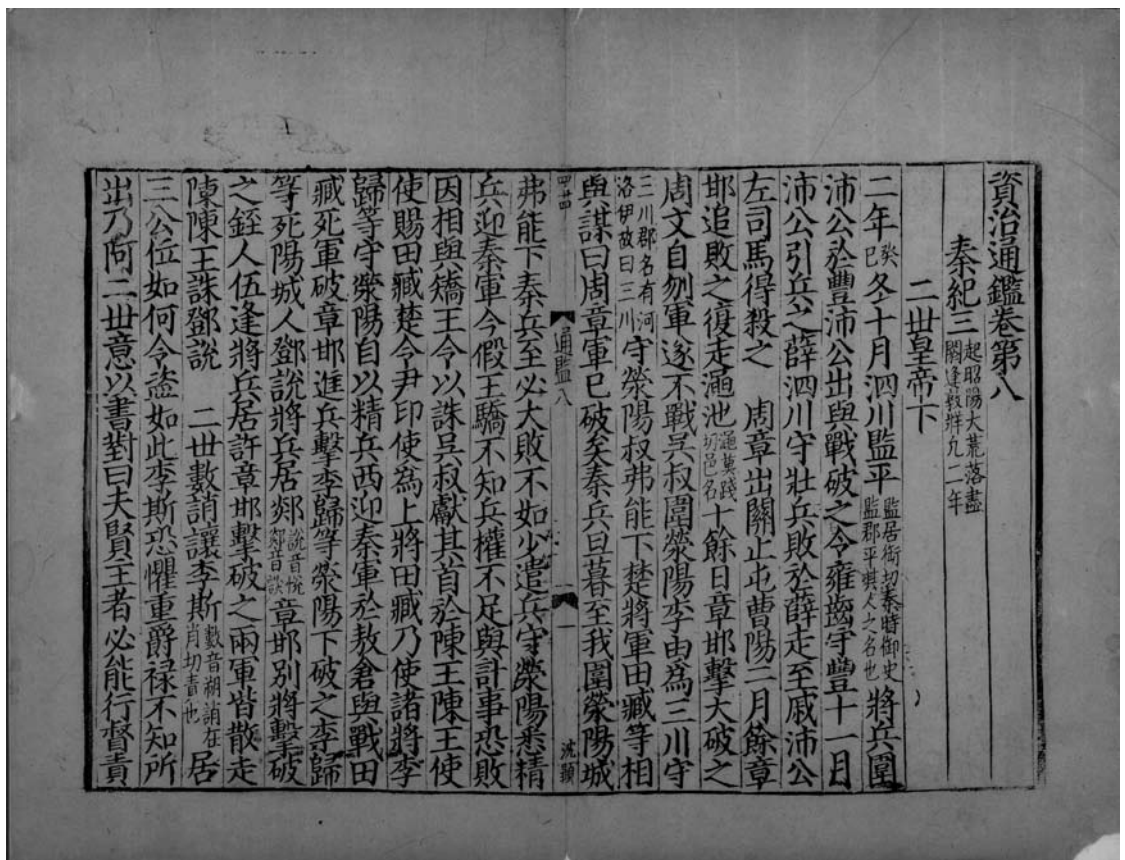 資治通鑑卷第八
秦紀三 起昭陽大荒落盡閼逢敦牂凡二年
二世皇帝下
二年 癸巳 冬十月泗川監平 監居銜切秦時御史監郡平其人之名也 將兵圍
沛公於豐沛公出與戰破之令雍齒守豐十一月
沛公引兵之薛泗川守壯兵敗於薛走至戚沛公
左司馬得殺之 周章出關止屯曹陽二月餘章
邯追敗之復走澠池 澠莫踐切邑名 十餘日章邯擊大破之
周文自刎軍遂不戰吳叔圍滎陽李由為三川守
三川郡名有河洛伊故曰三川 守滎陽叔弗能下楚將軍田臧等相
與謀曰周章軍已破矣秦兵旦暮至我圍滎陽城
四廿四 通監八 一 沈顯
弗能下秦兵至必大敗不如少遣兵守滎陽悉精
兵迎秦軍今假王驕不知兵權不足與計事恐敗
因相與矯王令以誅吳叔獻其首於陳王陳王使
使賜田臧楚令尹印使為上將田臧乃使諸將李
歸等守滎陽自以精兵西迎秦軍於敖倉與戰田
臧死軍破章邯進兵擊李歸等滎陽下破之李歸
等死陽城人鄧說將兵居郯 說音悅郯音談 章邯別將擊破
之銍人伍逢將兵居許章邯擊破之兩軍皆散走
陳陳王誅鄧說 二世數誚讓李斯 數音朔誚在肖切責也 居
三公位如何令盜如此李斯恐懼重爵祿不知所
出乃阿二世意以書對曰夫賢主者必能行督責